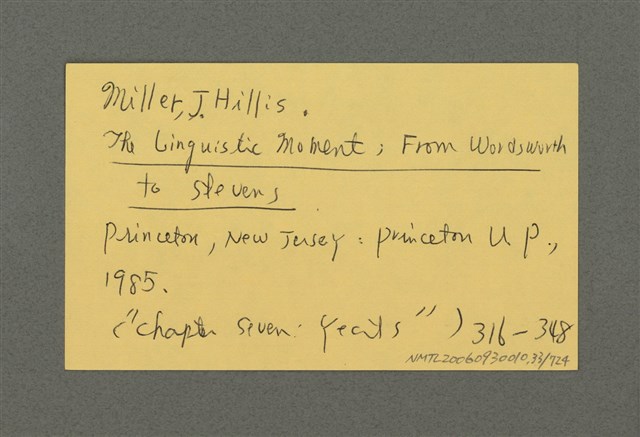 Miller, J. Hillis.
The Linguistic Moment; From Wordsworth
to Stevens
Princeton, New Jersey: Princeton U P.,
1985.
("Chapter Seven: Yeats") 316-348
NMTL20060930010.33/724